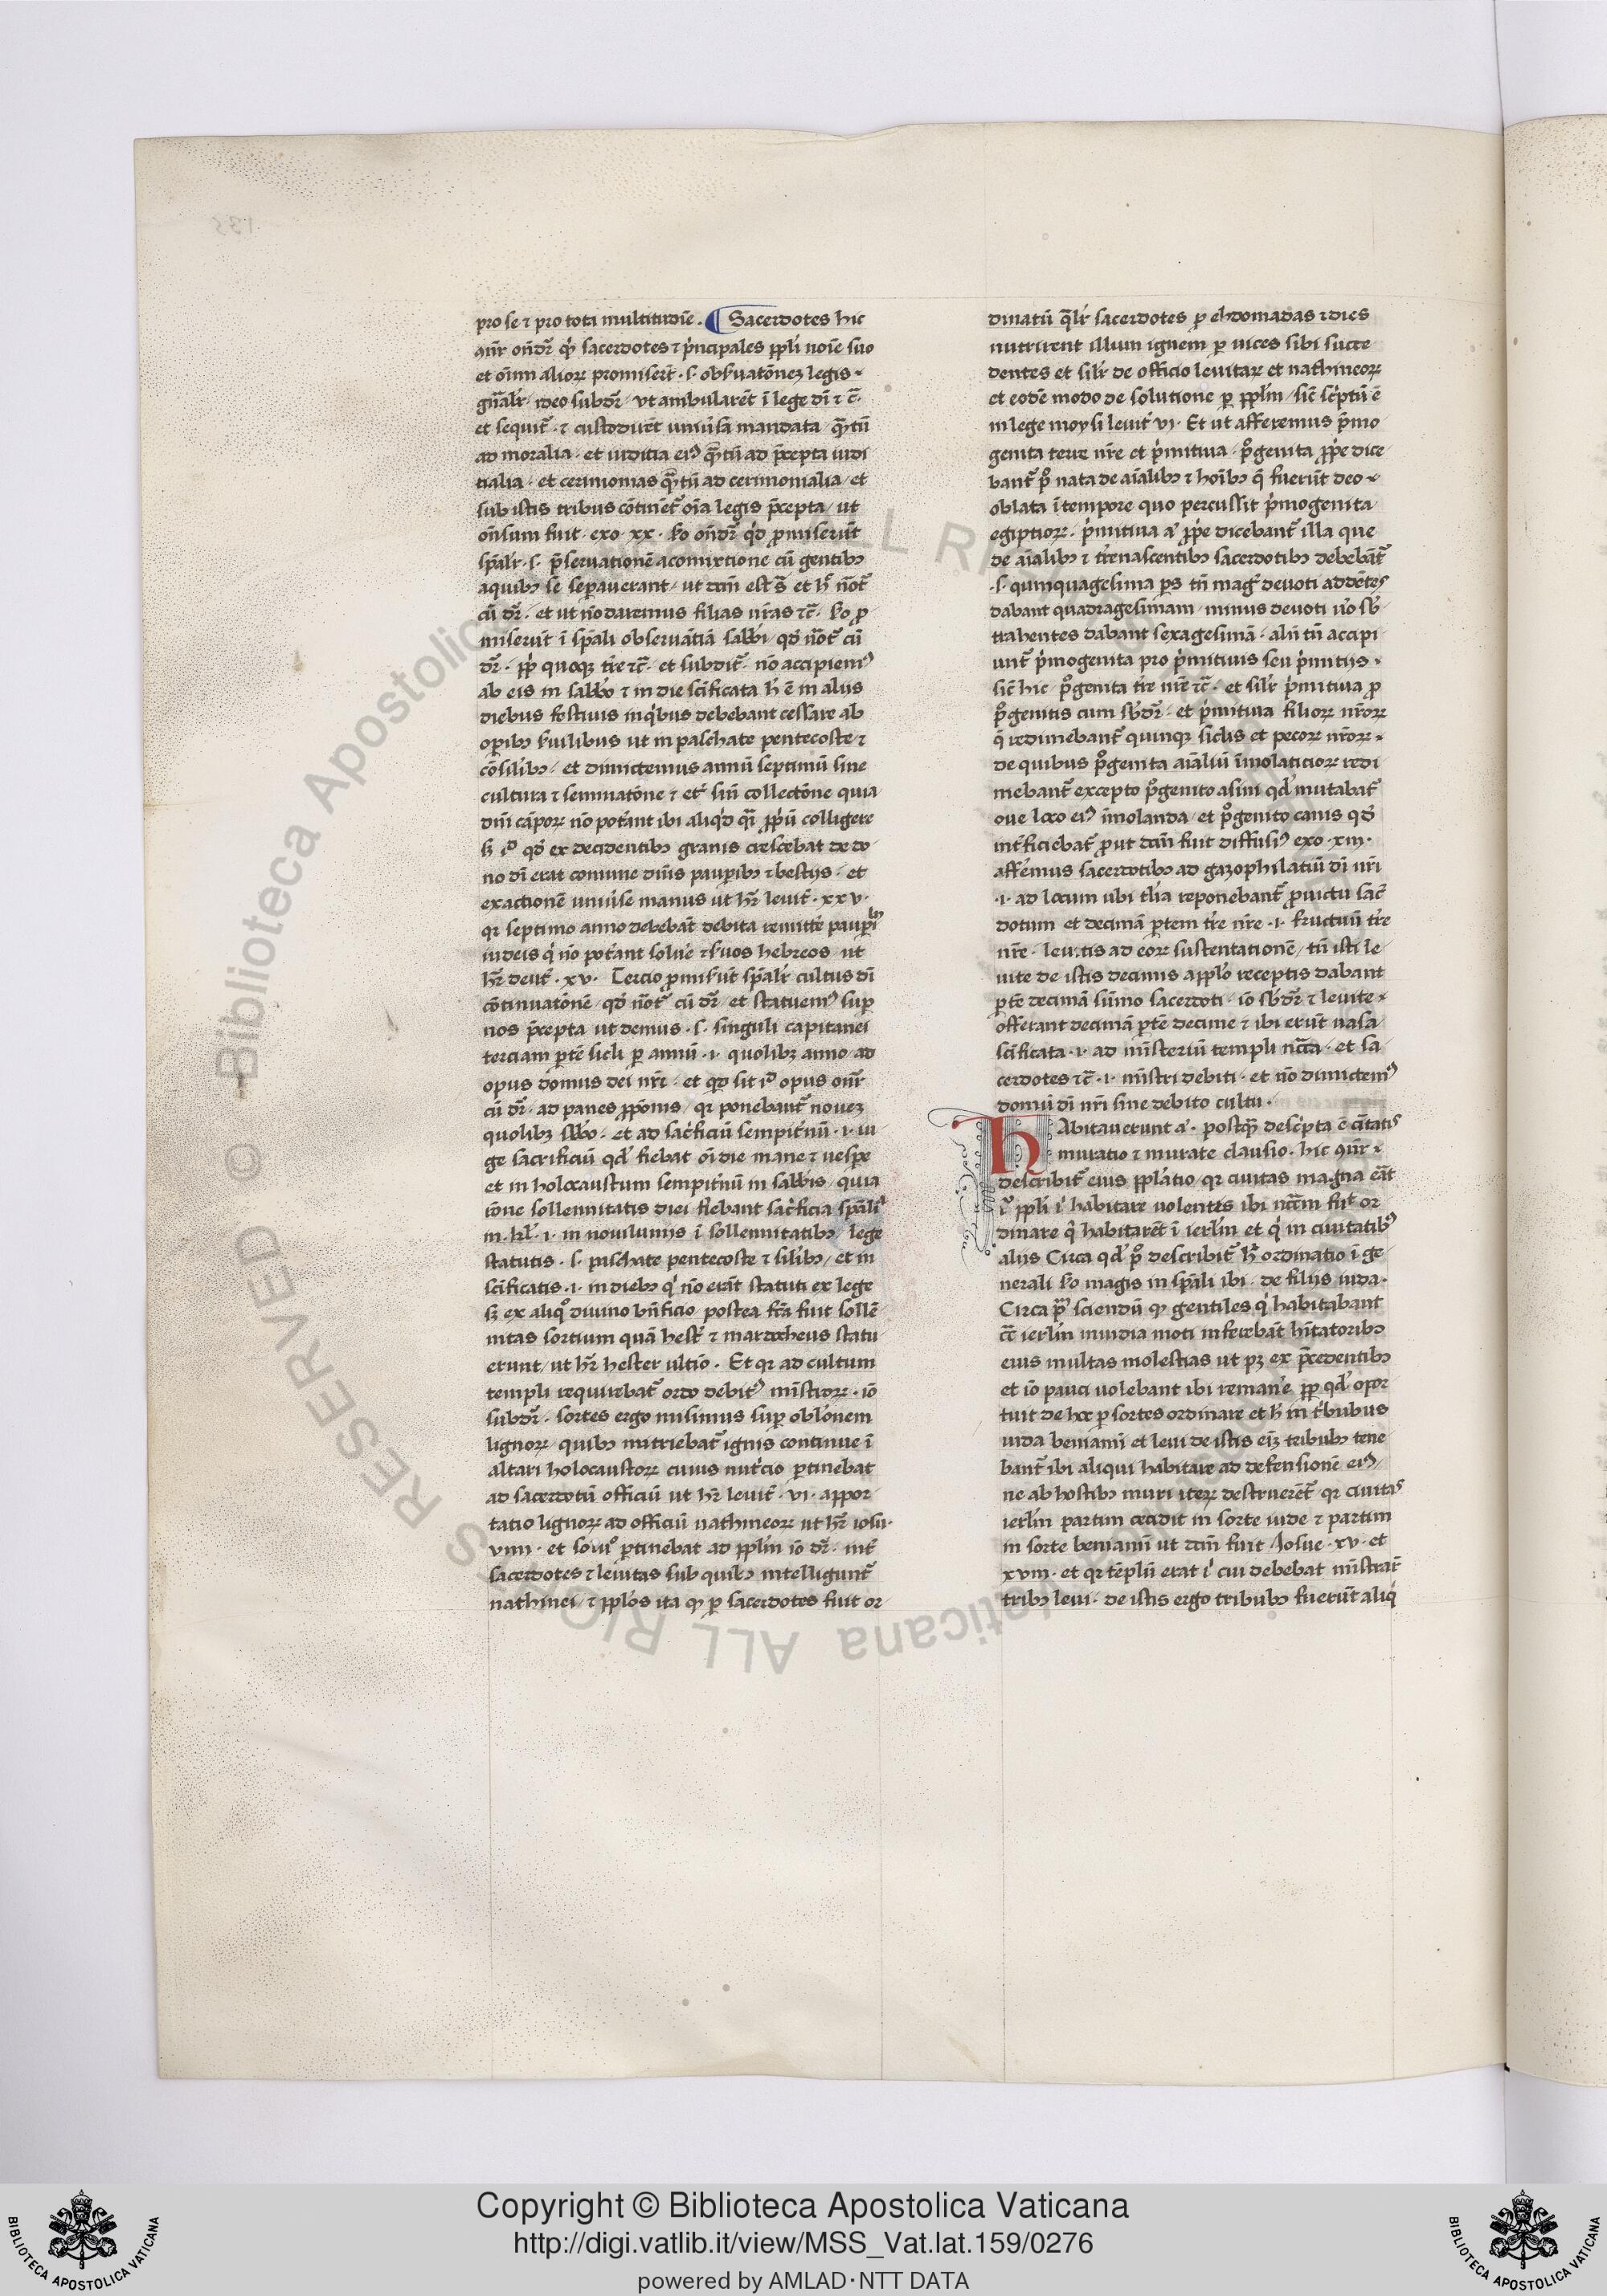 pro se ⁊ pro tota multitudĩe. ¶ Sacerdotes hic
qñr oñdr̃ qͥ sacerdotes ⁊ pͥncipales ppl̃i noĩe suo
et oĩum alioꝝ promiserũt .s. obẜuatõneʒ legis.
gñal̃r. ideo subdr̃. vt ambularẽt ĩ lege dñi ⁊ c̃.
et sequit̃. ⁊ custodirẽt uniũsa mandata qᷓtũ
ad moralia. et iuditia eiꝰ qᷓtũ ad p̃cepta iudi
tialia. et cerimonias qᷓtũ ad cerimonialia et
sub istis tribus cõtinẽt̃ oĩa legis p̃cepta ut
oñsum fuit. exo. xx. ẜo oñdr̃ qͥd ꝓmiserũt
spãl̃r .s. p̃seruationẽ acomixtione cũ gentibꝫ
aquibꝫ se sepauerant ut dcm̃ est s̃ et h̃ ñot̃
cũ dr̃. et ut ñ daremus filias nr̃as ⁊c̃. ẜo ꝓ
miserũt ĩ spãli obseruãtiã sabb̃i. qd̃ ñot̃ cũ
dr̃. ppl̃i quoqꝫ tr̃e ⁊c̃. et subdit̃. nõ accipiemꝰ
ab eis in sabb̃o ⁊ in die sc̃ificata h̃ ẽ in aliis
diebus festiuis inqͥbus debebant cessare ab
oꝑibꝫ ẜuilibus ut in paschate pentecoste ⁊
cõsil̃ibꝫ. et dimictemus annũ septimũ sine
cultura ⁊ seminatõne ⁊ etͥ sñ collectõne quia
dñi cãpoꝝ nõ potãt ibi aliqͥd qᷓi ꝓpũ colligere
ẜ iᵈ qd̃ ex decidentibꝫ granis crescebat de do
no dñi erat comune dĩuis pauꝑibꝫ ⁊ bestijs. et
exactionẽ uniũse manus ut hr̃ leuit̃. xxv.
qꝛ septimo anno debebãt debita remittẽ pauꝑibꝫ
iudeis qͥ nõ potãt soluẽ ⁊ ẜuos hebreos. ut
hr̃ deut̃. xv. Tercio ꝓmisẽũt spãl̃r cultus dñi
cõtinuatõnẽ qd̃ ñot̃ cũ dr̃. et statuemꝰ suꝑ
nos p̃cepta ut demus .s. singuli capitanei
terciam ꝑtẽ sicli ꝑ annũ .i. quolibꝫ anno ad
opus domus dei nr̃i. et qd̃ sit iᵈ opus oñr̃
cũ dr̃. ad panes ꝓpõnis. qꝛ ponebant̃ noueʒ
quolibꝫ sab̃o. et ad sacͥficiũ sempitͥnũ .i. iu
ge sacrificiũ qd̃ fiebat oĩ die mane ⁊ uesꝑe
et in holocaustum sempitͥnũ in sabb̃is quia
iõne sollennitatis diei fiebant sacͥficia spãliᵃ
in. kl̃. .i. in nouiluniis ĩ sollennitatibꝫ lege
statutis .s. paschate pentecoste ⁊ sil̃ibꝫ et in
sc̃ificatis .i. in diebꝫ qͥ nõ erãt statuti ex lege
sꝫ ex aliqͦ diuino bñficio postea fc̃a fuit sollẽ
nitas sortium quã hestͥ ⁊ mardocheus statu
erunt ut hr̃ hester ultĩo. Et qꝛ ad cultum
templi requirebat̃ ordo debitꝰ mĩstroꝝ. iõ
subdr̃. sortes ergo misimus suꝑ obl̃onem
lignoꝝ quibꝫ nutriebat̃ ignis continue ĩ
altari holocaustoꝝ cuius nutͥcio ꝑtinebat
ad sacerdotũ officiũ ut hr̃ leuit̃. vi. appor
tatio lignoꝝ ad officiũ nathineoꝝ ut hr̃ iosu.
viiii. et solũᵒ ꝑtinebat ad ppl̃m iõ dr̃. int̃
sacerdotes ⁊ leuitas sub quibꝫ intelligunt̃
nathinei ⁊ ppl̃os ita qͥ ꝑ sacerdotes fuit or
dinatũ qᷓl̃r sacerdotes ꝑ ebdomadas ⁊ dies
nutrirent illum ignem ꝑ uices sibi succe
dentes et sil̃r de officio leuitaꝝ et nathineoꝝ
et eodẽ modo de solutione ꝑ ppl̃m sic̃ scͥptũ ẽ
in lege moysi leuit̃ vi. Et ut afferemus pͥmo
genita terre nr̃e et pͥmitiua. pͥgenita ꝓpͥe dice
bant̃ pͥ nata de aĩalibꝫ ⁊ hoĩbꝫ q̃ fuerũt deo
oblata ĩ tempore quo percussit pͥmogenita
egiptioꝝ. pͥmitiua aͧ ꝓpͥe dicebant̃ illa que
de aĩalibꝫ ⁊ tr̃enascentibꝫ sacerdotibꝫ debebãt̃
.s. quinquagesima ps tñ magͥ deuoti addẽtes
dabant quadragesimam. minus deuoti ũo sb̃
trahentes dabant sexagesimã. alii tñ accipi
unt̃ pͥmogenita pro pͥmitiuis seu pͥmitijs.
sic̃ hic pͥgenita tr̃e nr̃e ⁊c̃. et sil̃r pͥmitiua ꝓ
pͥgenitis cum sb̃dr̃. et pͥmitiua filioꝝ nr̃oꝝ
q̃ redimebant̃ quinqꝫ siclis et pecoꝝ nr̃oꝝ.
de quibus pͥgenita aĩaliũ ĩmolaticioꝝ redi
mebant̃ excepto pͥgenito asini qd̃ mutabat̃
oue loco eiꝰ ĩmolanda et pͥgenito canis qd̃
int̃ficiebat̃ ꝓut dcm̃ fuit diffusiꝰ exo. xiii.
affẽmus sacerdotibꝫ ad gazophilatiũ dñi nr̃i
.i. ad locum ubi tl̃ia reponebant̃ ꝓ uictu sac̃
dotum et decimã ꝑtem tr̃e nr̃e .i. fructuũ tr̃e
nr̃e. leuitis ad eoꝝ sustentationẽ tñ isti le
uite de istis decimis appl̃o receptis dabant
ꝑtẽ decimã sũmo sacerdoti. iõ sb̃dr̃ ⁊ leuite
offerant decimã ꝑtẽ decime ⁊ ibi erũt uasa
sc̃ificata .i. ad mĩsteriũ templi nc̃cãa. et sa
cerdotes ⁊c̃ .i. mĩstri debiti. et nõ dimictemꝰ
domũ dñi nr̃i sine debito cultu.
Habitauerunt aͧ. postqᷓ descͥpta ẽ ciũtatis
muratio ⁊ murate clausio. hic qñr
describit̃ eius ppl̃atio qꝛ ciuitas magna erãt
iᵒ ppl̃i iͥ habitare uolentes ibi nc̃cãm fuit or
dinare qͥ habitarẽt ĩ ierl̃m et qͥ in ciuitatibꝰ
aliis Circa qd̃ pͦ describit̃ h̃ ordinatio ĩ ge
nerali ẜo magis in spãli ibi. de filijs iuda.
Circa pᷓ sciendũ qͥ gentiles qͥ habitabant
cc̃ ierl̃m inuidia moti inferebãt hĩtatoribꝫ
eius multas molestias ut pꝫ ex p̃cedentibꝫ
et iõ pauci uolebant ibi remanẽ ꝓp qd̃ opor
tuit de hoc ꝑ sortes ordinare et h̃ in tͥbubus
iuda beniamĩ et leui de istis eĩꝫ tribubꝫ tene
bant̃ ibi aliqui habitare ad defensionẽ eiꝰ
ne ab hostibꝫ muri iteꝝ destruerẽt̃ qꝛ ciuitas
ierl̃m partim cecidit in sorte iude ⁊ partim
in sorte beniamĩ ut dcm̃ fuit Josue. xv. et
xviii. et qꝛ tẽplũ erat iͥ cui debebat mĩstrar̃
tribꝫ leui. de istis ergo tribubꝫ fuerũt aliqͥ
Copyright © Biblioteca Apostolica Vaticana
http://digi.vatlib.it/view/MSS_Vat.lat.159/0276
powered by AMLAD·NTT DATA
BIBLIOTECA APOSTOLICA VATICANA
BIBLIOTECA APOSTOLICA VATICANA